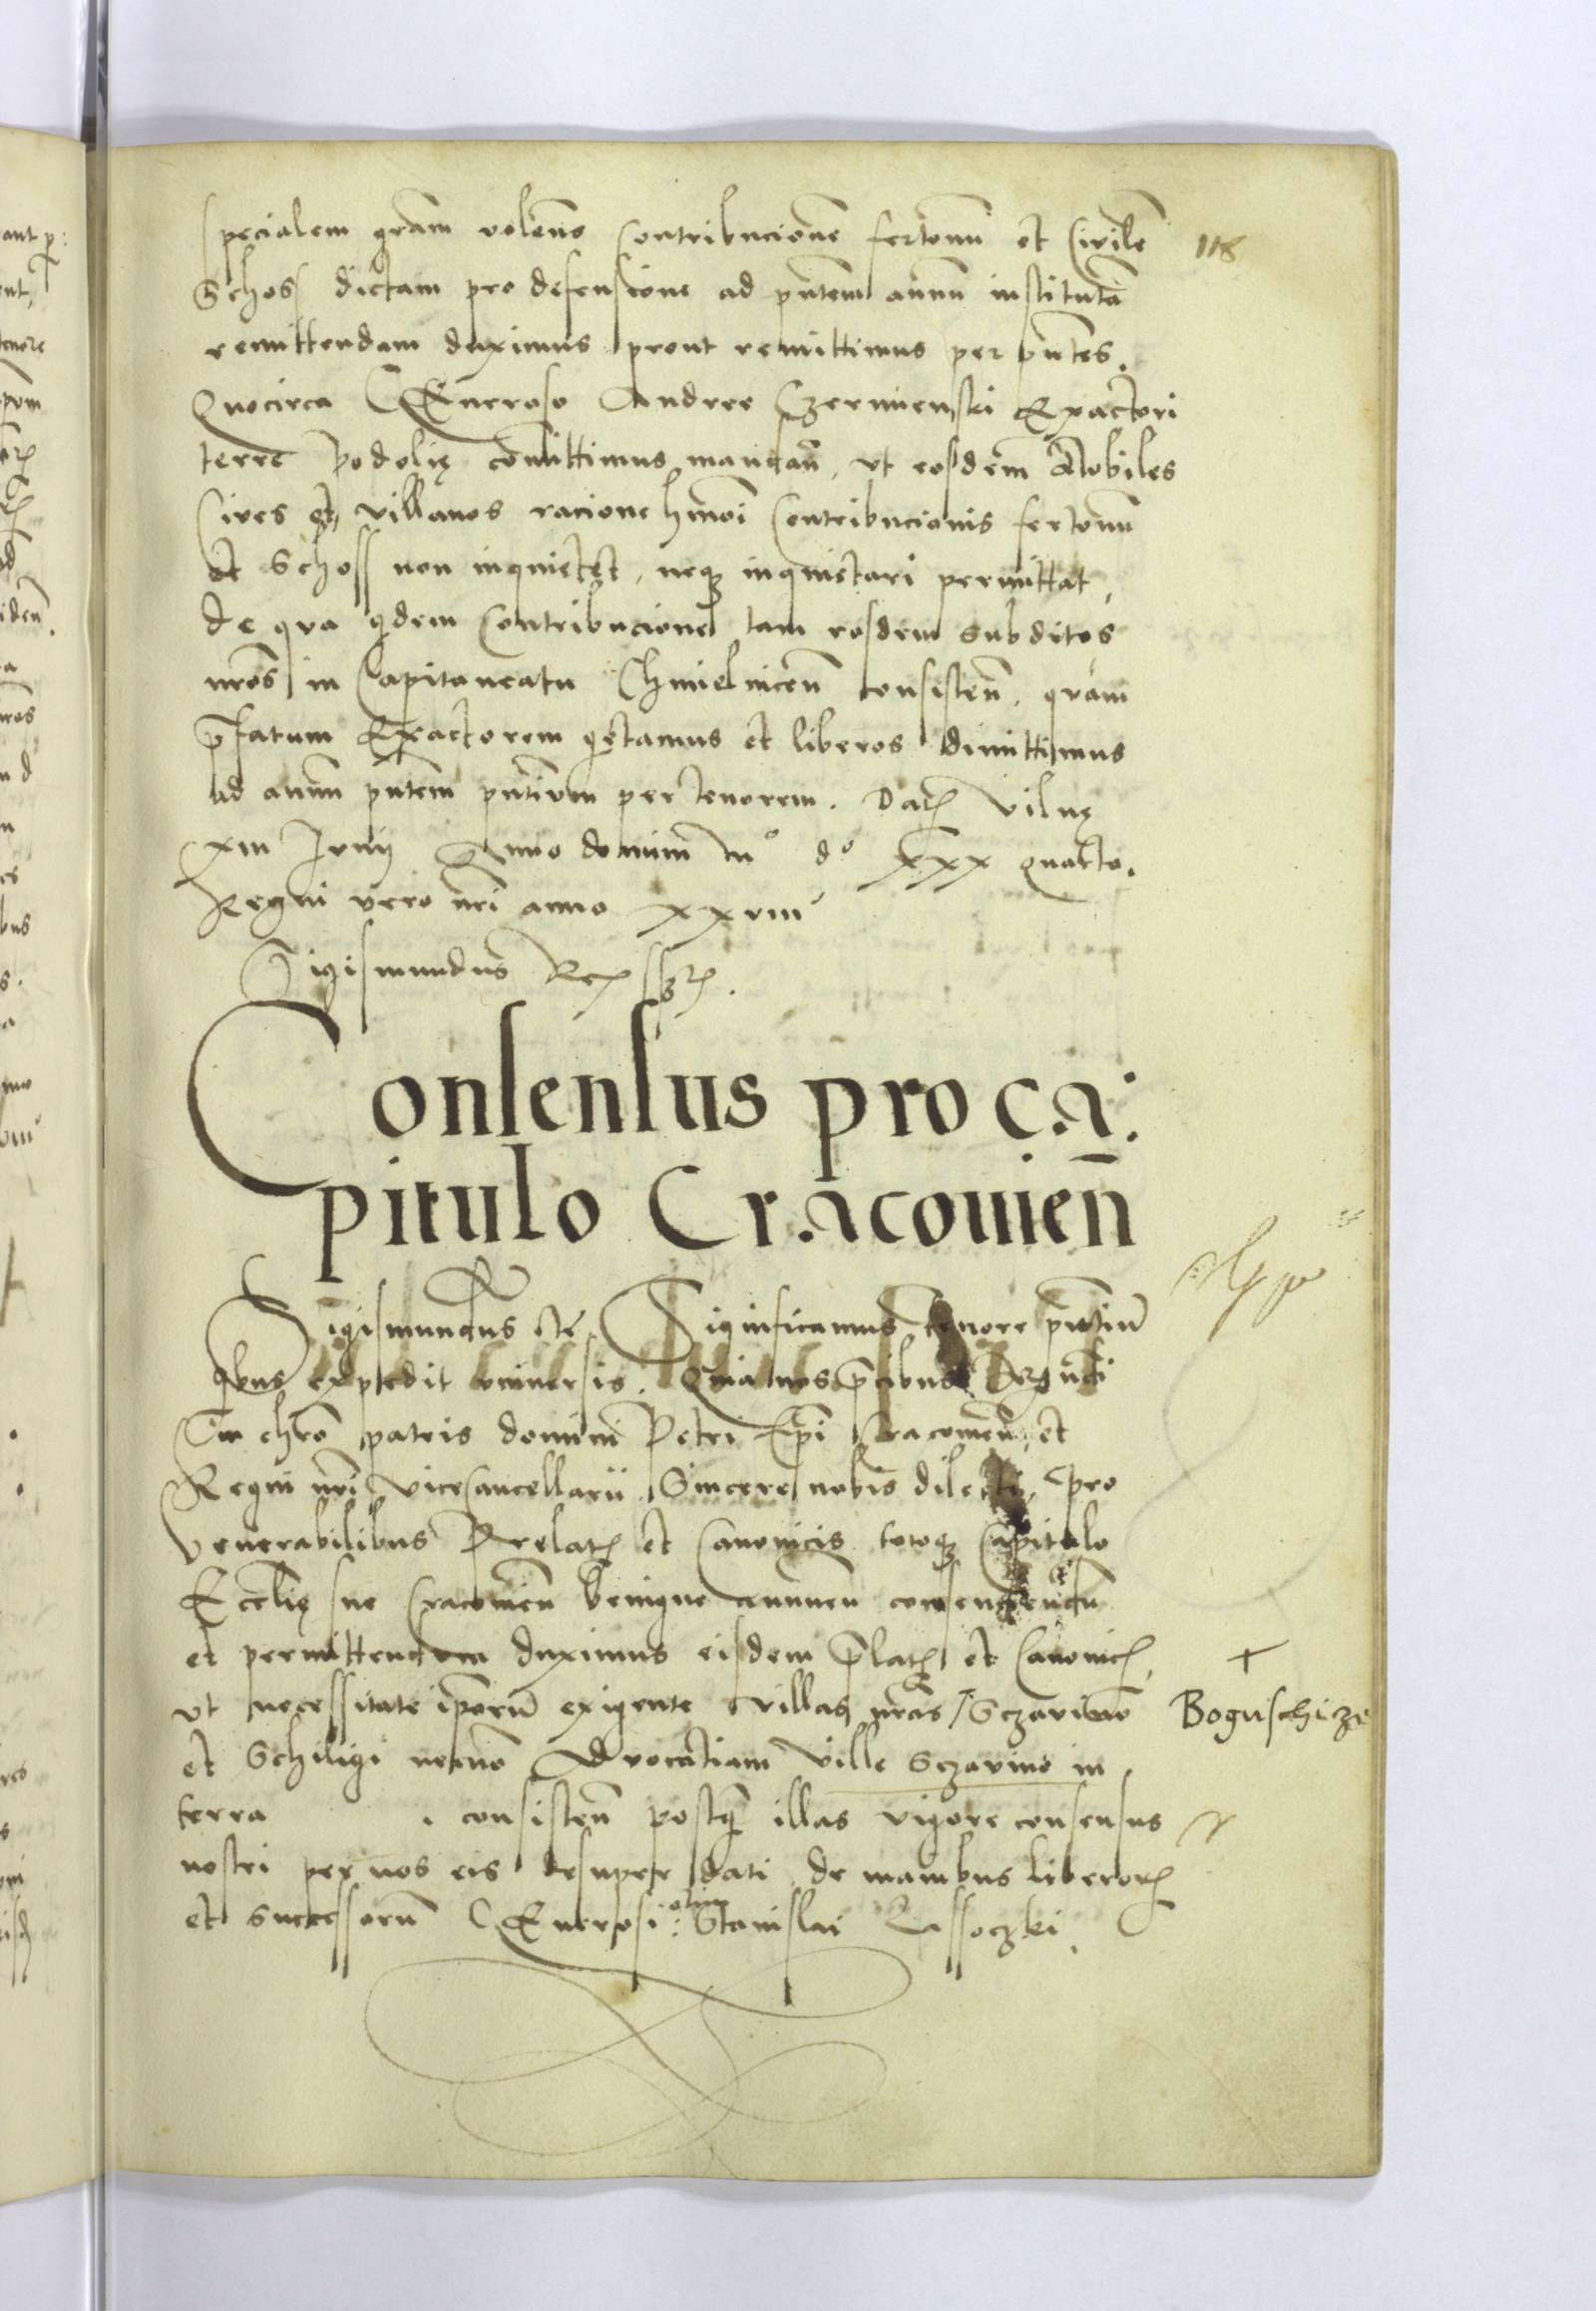 specialem gram volens Contribucione fertonu et Civile
118
Schoss dictam pro defensione ad pntem annu instituta
remittendam duximus prout remittimus per pntes.
Quocirca Generoso Andree Czermienski Exactori
terre Podolię comittimus mandan, ut eosdem Nobiles
Cives et villanos racione hmoi Contribucionis fertonu
et Schoss non inquietet, neqz inquietari permittat,
de qua qdem Contribucione tam eosdem subditos
nros in Capitaneatu Chmielnicen consisten, quam
pfatum Exactorem qetamus et liberos dimittimus
ad annu pntem pntium per tenorem. Dat Vilnę
xiii Junij Anno domini mº dº xxx quarto.
Regni vero nri anno xxviii
Sigismundus Rex sszt.
Consensus pro ca:
pitulo Cracouien
Sigismundus etc. Significamus tenore pntiu
qbus expedit universis. Quia nos pcibus Rgndi
In chro patris domini Petri Epi Cracouien, et
Regni nri ViceCancellarii Sincere nobis dilecti, pro
Venerabilibus Prelat et Canonicis totoqz Capitulo
Ecclię sue Cracouien benigne annuen consenciendu
et permittendum duximus eisdem plat et Canonic,
+
ut necessitate iporu exigente villas nras Sczavino
Boguschicze
et Schiligi necno Advocatiam ville Sczavino in
terra . consisten postq illas vigore consensus
nostri per nos eis desuper dati de manibus liberor
et successoru Generosi olim Stanislai Lassoczki